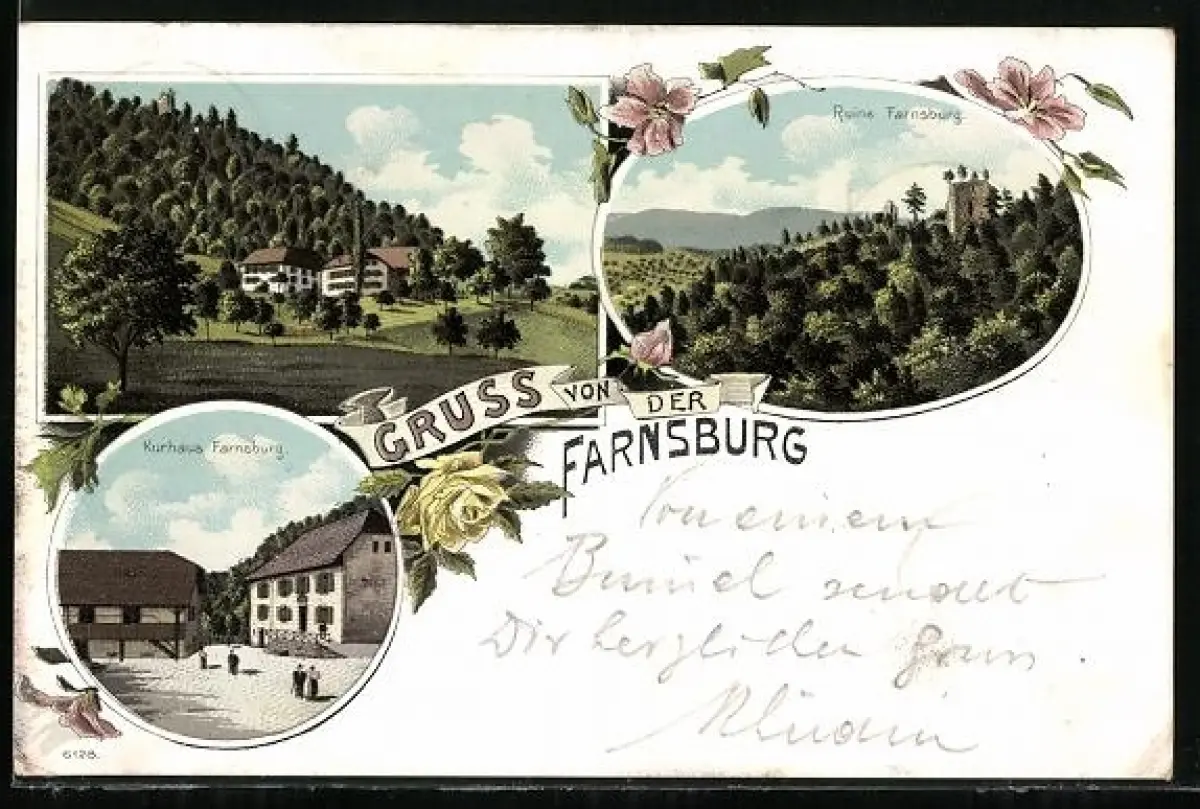 Ruine Farnsburg.
GRUSS VON DER
FARNSBURG
Kurhaus Farnsburg.
Von einem
sendet
Dir herzlichen Gruss.
6128.